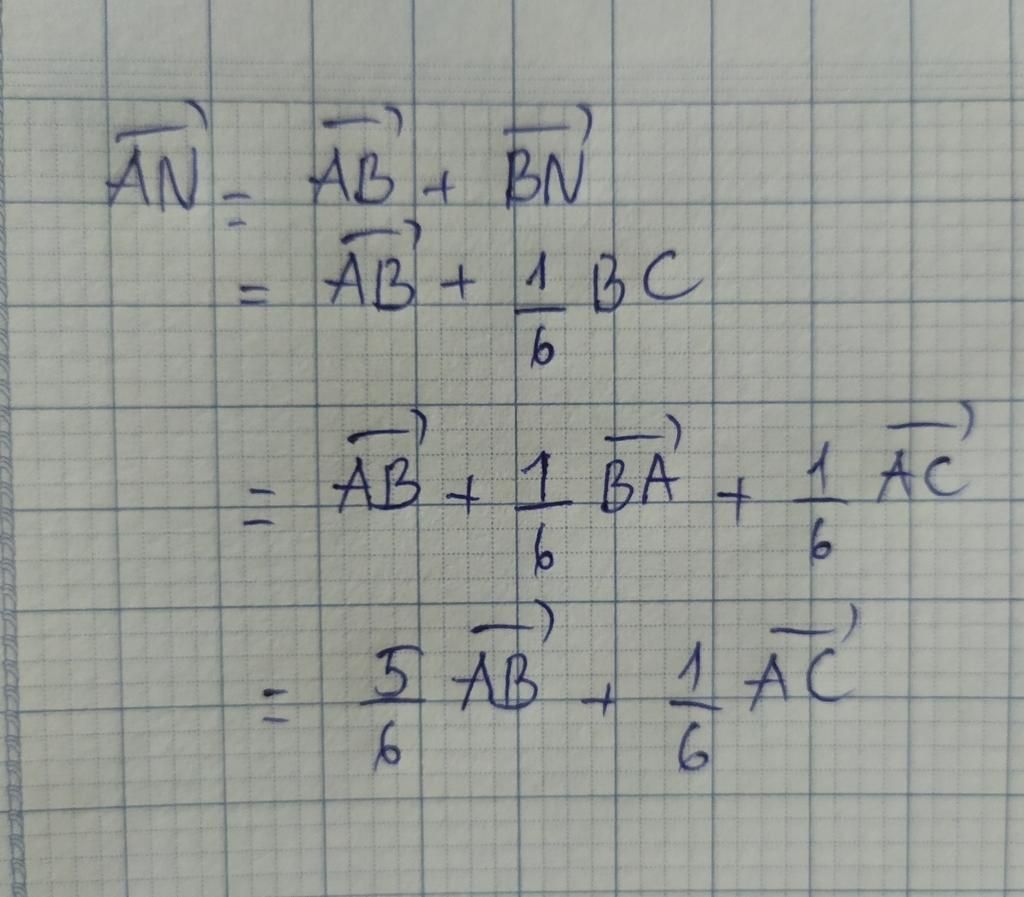 $\overrightarrow{AN} = \overrightarrow{AB} + \overrightarrow{BN}$
$= \overrightarrow{AB} + \frac{1}{6} BC$
$= \overrightarrow{AB} + \frac{1}{6} \overrightarrow{BA} + \frac{1}{6} \overrightarrow{AC}$
$= \frac{5}{6} \overrightarrow{AB} + \frac{1}{6} \overrightarrow{AC}$